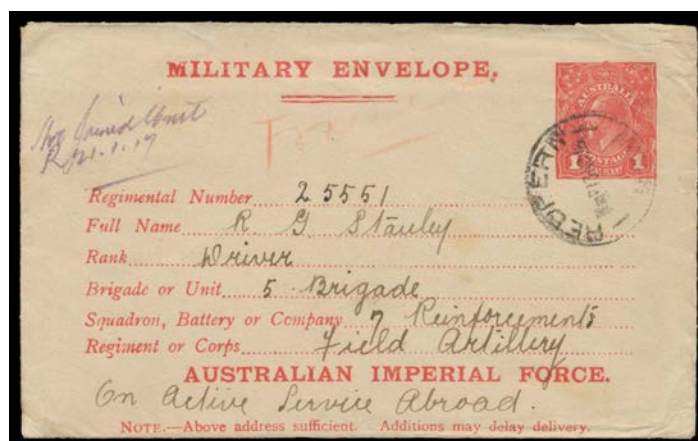 MILITARY ENVELOPE.
AUSTRALIA
POSTAGE
1 ONE PENNY 1
REDFERN
Not Joined Unit
21.1.17
Regimental Number 25551
Full Name R. G. Stanley
Rank Driver
Brigade or Unit 5 Brigade
Squadron, Battery or Company 7 Reinforcements
Regiment or Corps Field Artillery
AUSTRALIAN IMPERIAL FORCE.
On Active Service Abroad.
NOTE.—Above address sufficient. Additions may delay delivery.